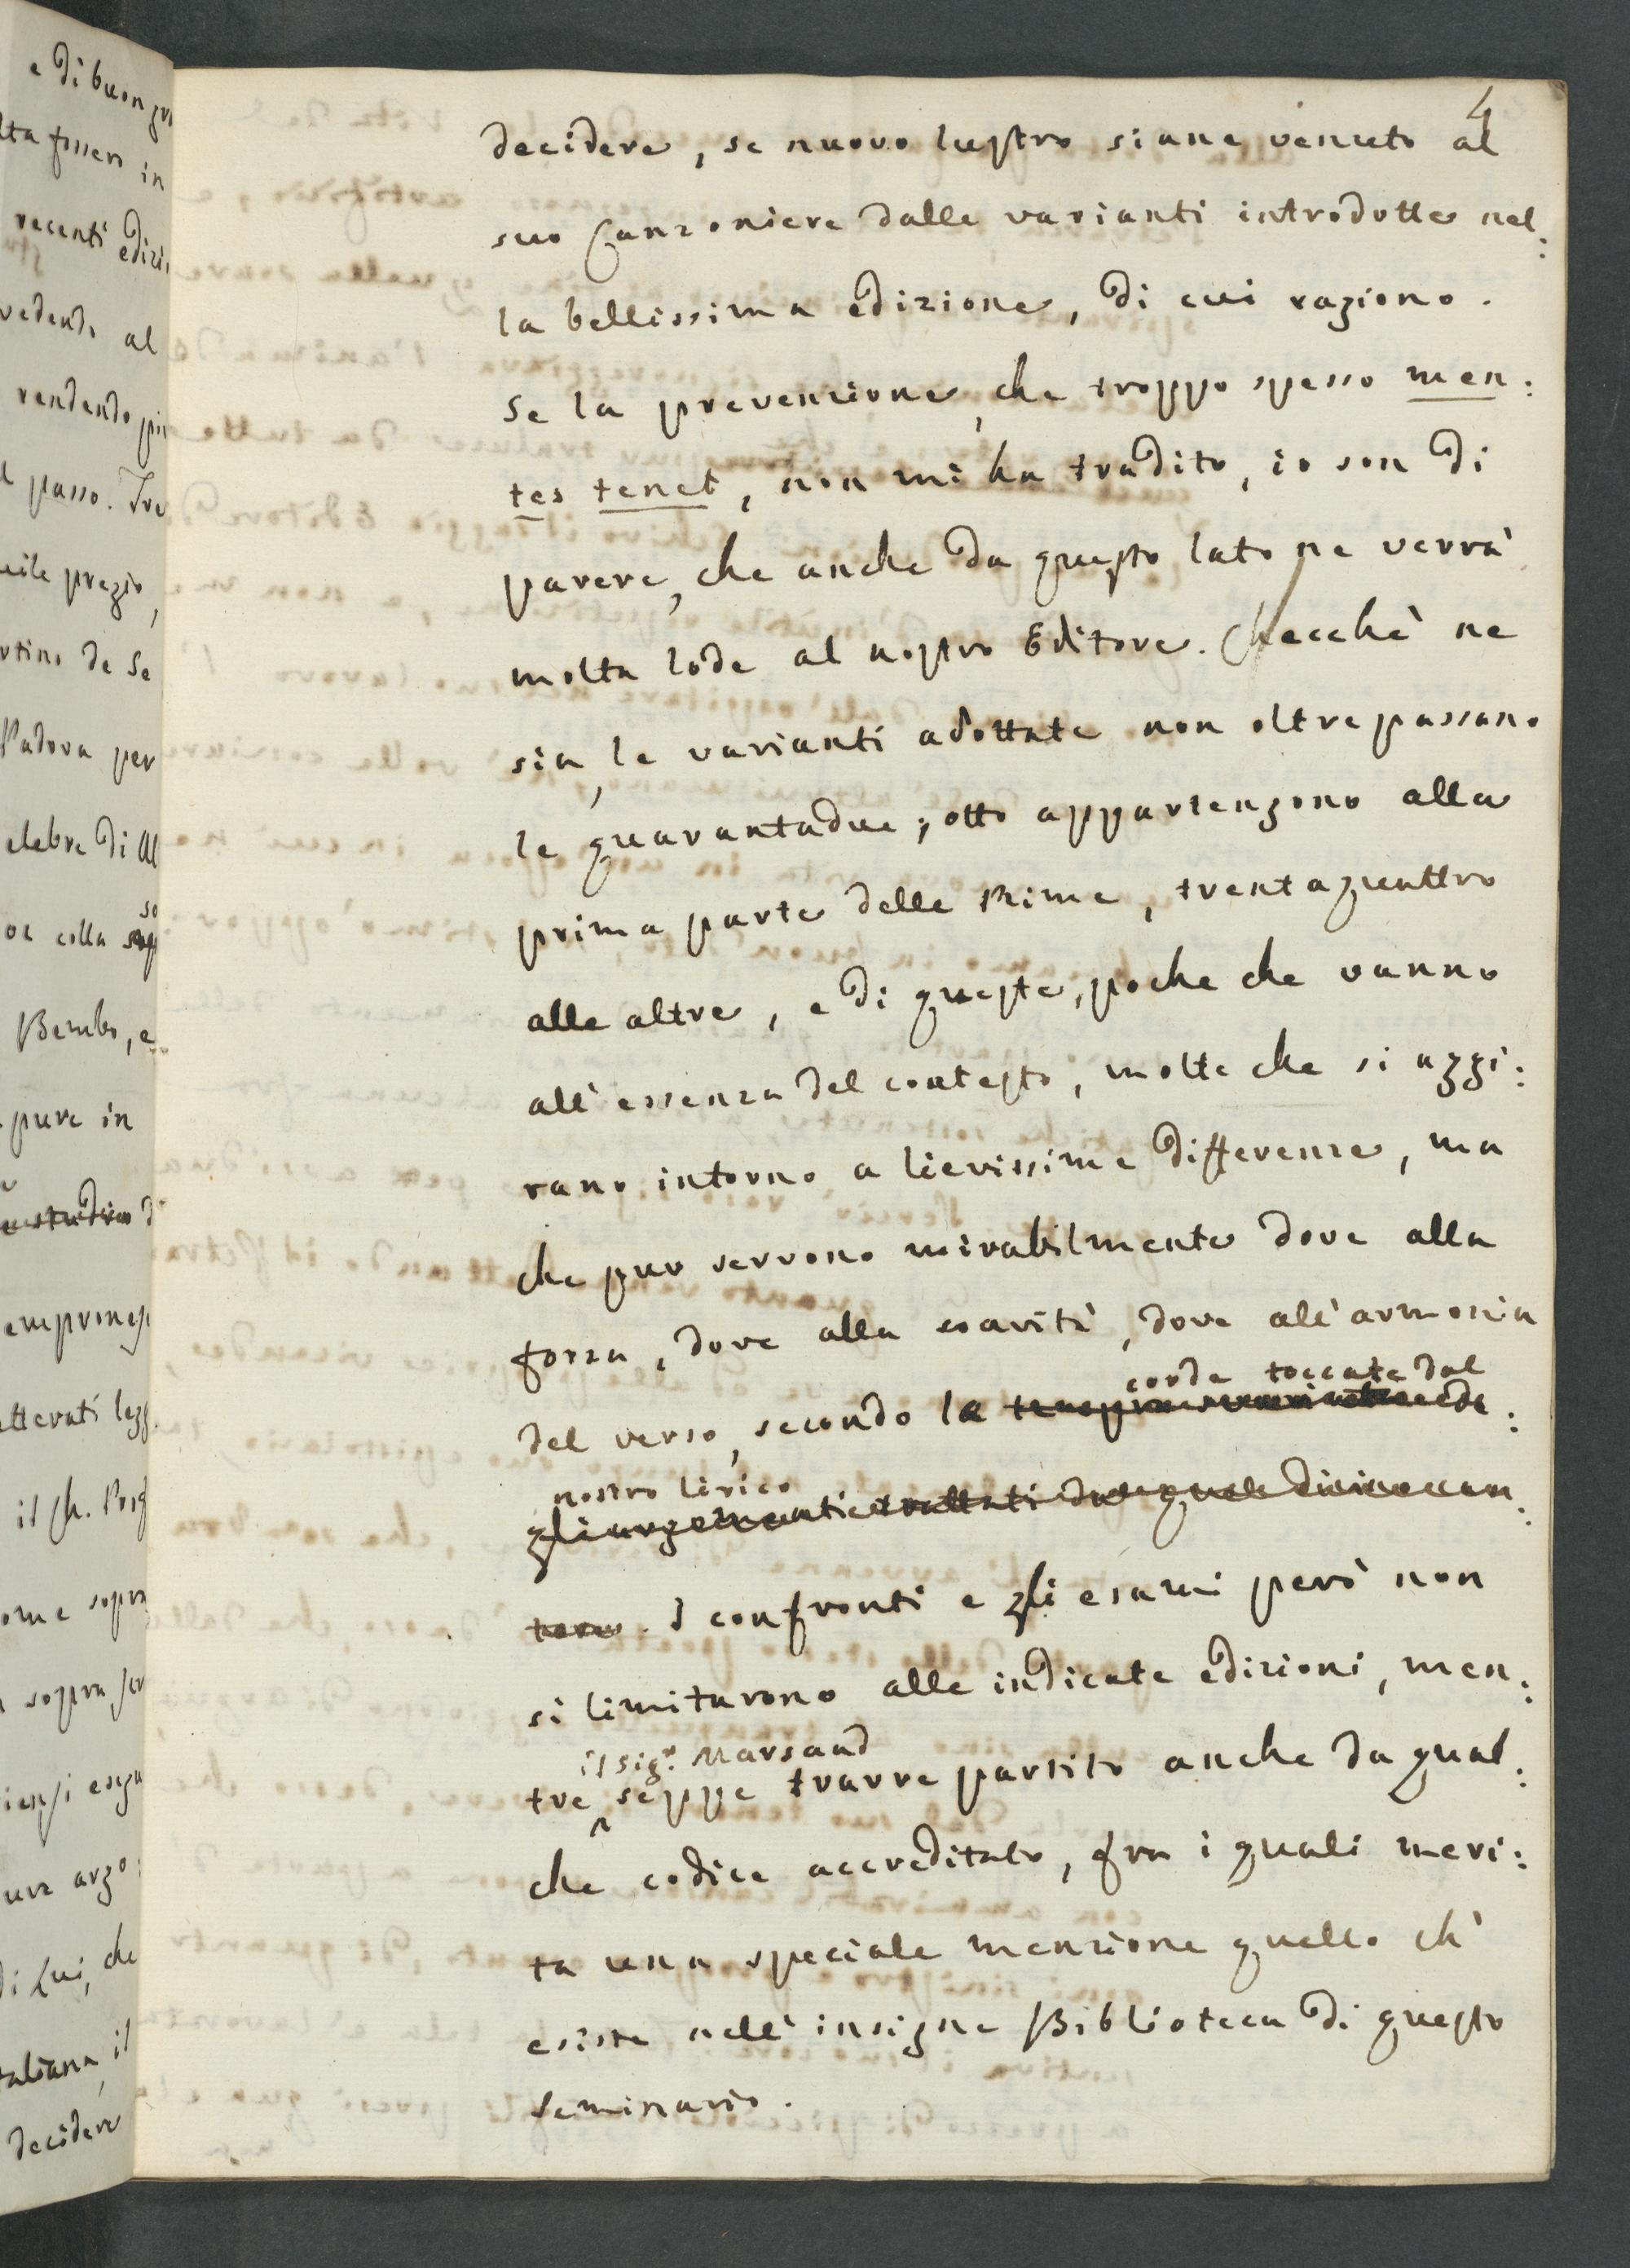 4
decidere, se nuovo lustro siane venuto al
suo Canzoniere dalle varianti introdotte nel:
la bellissima edizione, di cui ragiono.
Se la prevenzione, che troppo spesso men:
tes tenet, non mi ha tradito, io son di
parere, che anche da questo lato ne verrà
molta lode al nostro Editore. Checchè ne
sia, le varianti adottate non oltrepassano
le quarantadue; otto appartengono alla
prima parte delle Rime, trentaquattro
alle altre, e di queste, poche che vanno
all'essenza del contesto, molte che si aggi:
rano intorno a lievissime differenze, ma
che pur servono mirabilmente dove alla
forza, dove alla soavità, dove all'armonia
corde toccate dal
del verso, secondo le
nostro lirico
gli argomenti trattati dal
tore. I confronti e gli esami però non
si limitarono alle indicate edizioni, men:
il Sigr. Marsand
tre seppe trarre partito anche da qual:
che codice accreditato, fra i quali meri:
ta una speciale menzione quello ch'
esiste nell'insigne Biblioteca di questo
Seminario.
e di buon
in
recenti edizi
vedendo al
rendendo
passo. Tre
prezzo,
de Se
Padova per
di Al
so
colla
Bembo, e
pure in
il Ch.
sopra
sopra
di Lui, che
taliana, il
decidere